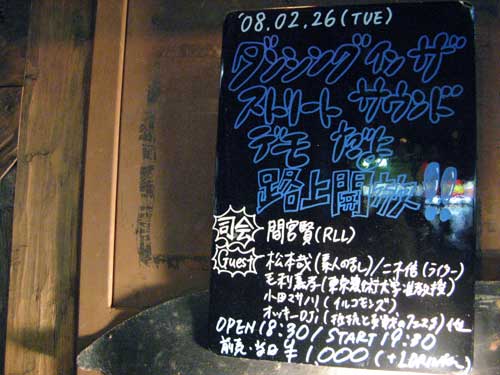 '08.02.26(TUE)
ダンシング イン ザ
ストリート サウンド
デモ だよ
路上開放!!
司会 間宮賢(RLL)
Guest 松本哉(素人の乱)/二木信(ライター)
毛利嘉孝(東京芸術大学准教授)
小田マサノリ(イルコモンズ)
オッキーDJ 他
OPEN 18:30/START 19:30
前売・当日 ¥1,000